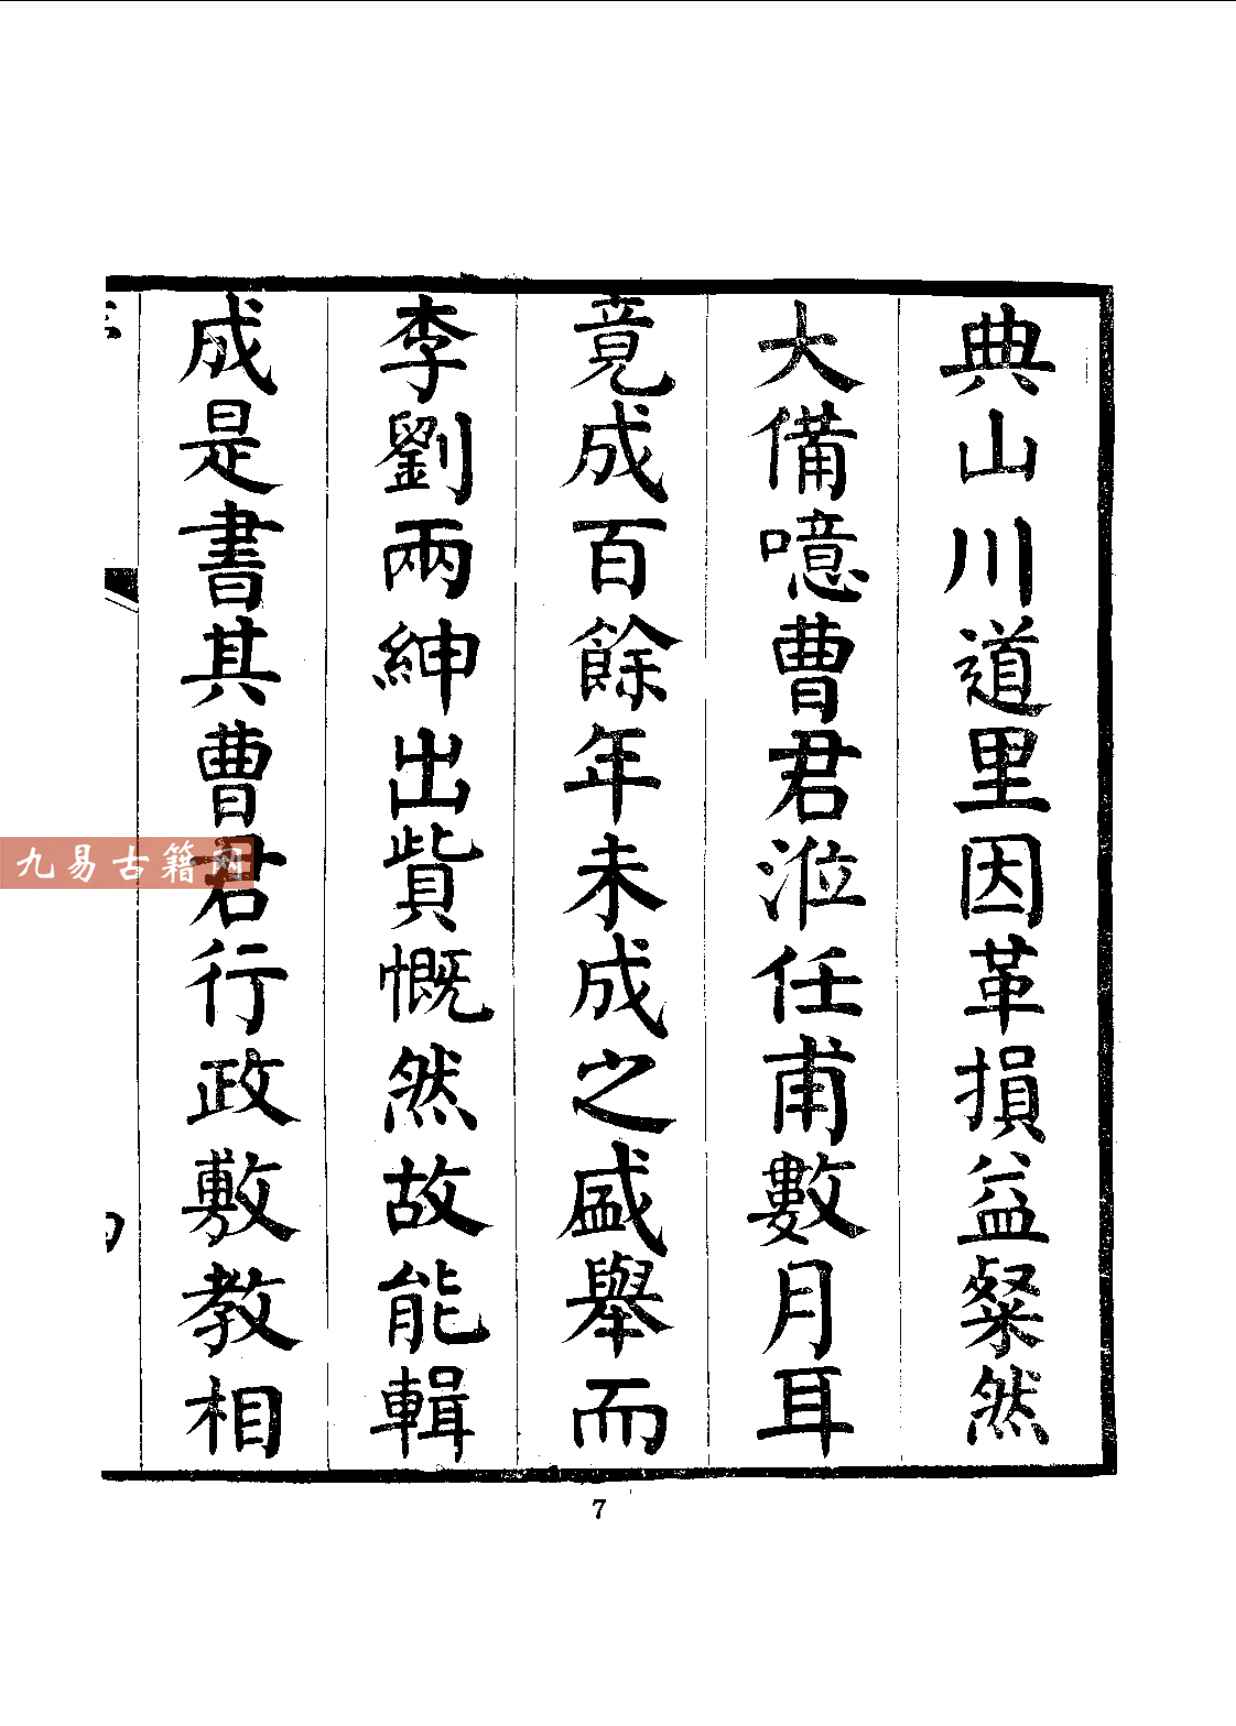 典山川道里因革損益粲然
大備噫曹君涖任甫數月耳
竟成百餘年未成之盛舉而
李劉兩紳出貲慨然故能輯
成是書其曹君行政敷教相
九易古籍网
7